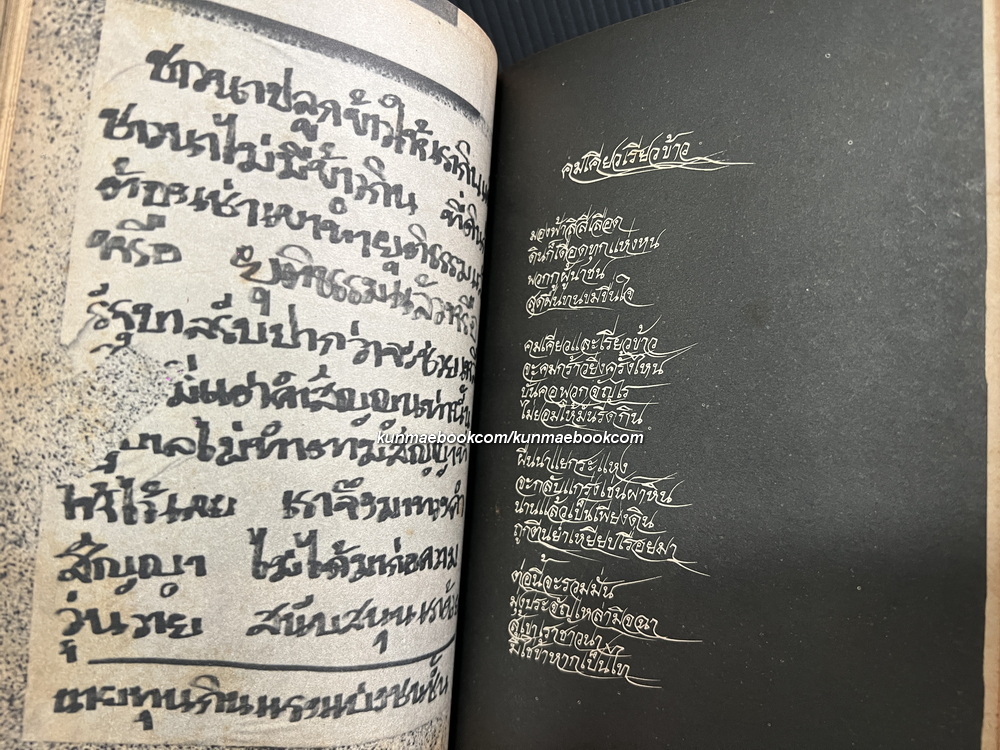 ชาวนาปลูกข้าวให้เรากิน
ชาวนาไม่มีข้าวกิน ที่ดิน
ต้องเช่าเขาทำ ยุติธรรม
หรือ ยุติธรรมแล้วหรือ
รัฐบาลรับปากว่าจะช่วย
สัญญาเท่านั้น
บาลไม่ทำตามสัญญาที่
ให้ไว้เลย เราจึงมาทวงคำ
สัญญา ไม่ได้มาก่อความ
วุ่นวาย สนับสนุน
นายทุนกินแรงแบ่งชนชั้น
คมเคียวเรียวข้าว
มองฟ้าสิสีเลือด
ดินก็เดือดทุกแห่งหน
พวกกูผู้นาชน
สุดฝืนทนขมขื่นใจ
คมเคียวและเรียวข้าว
จะคมกร้าวยิ่งครั้งไหน
บั่นคอพวกจัญไร
ไม่ยอมให้มันรีดกิน
ผืนนาแยกระแหง
จะกลับแกร่งเช่นผาหิน
นานแล้วเป็นเพียงดิน
ถูกตีนย่ำเหยียบเรื่อยมา
ต่อนี้จะรวมมั่น
มุ่งประจัญเหล่ามิจฉา
สู้เขาเราชาวนา
มิใช่ข้าหากเป็นไท
kunmaebookcom/kunmaebookcom